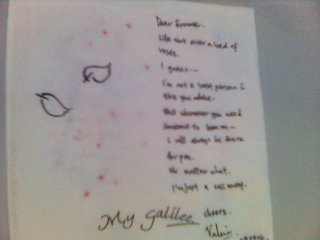 Dear
Life not ever a bed of
roses.
I guess...
I'm not a best person I
give you advice.
But whenever you need
someone to lean on -
I will always be there
for you.
No matter what.
I'm just a call away.
cheers.
My Galilee